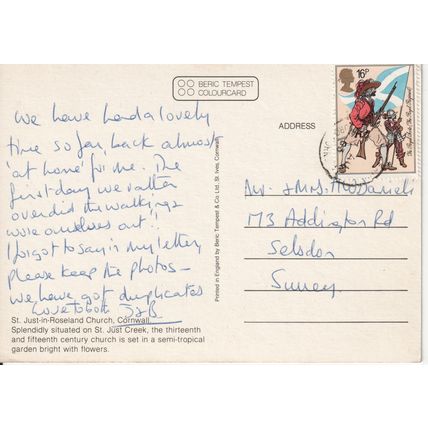 BERIC TEMPEST
COLOURCARD
16P
The Royal Scots (The Royal Regiment)
ADDRESS
We have had a lovely
time so far, back almost
'at home' for me. The
first day we rather
overdid the walking &
wore ourselves out!!
I forgot to say in my letter
please keep the photos –
we have got duplicates
Love to both J & B.
Mr. & Mrs.
173 Addington Rd
Selsdon
Surrey.
Printed in England by Beric Tempest & Co. Ltd. St. Ives, Cornwall
St. Just-in-Roseland Church, Cornwall.
Splendidly situated on St. Just Creek, the thirteenth
and fifteenth century church is set in a semi-tropical
garden bright with flowers.